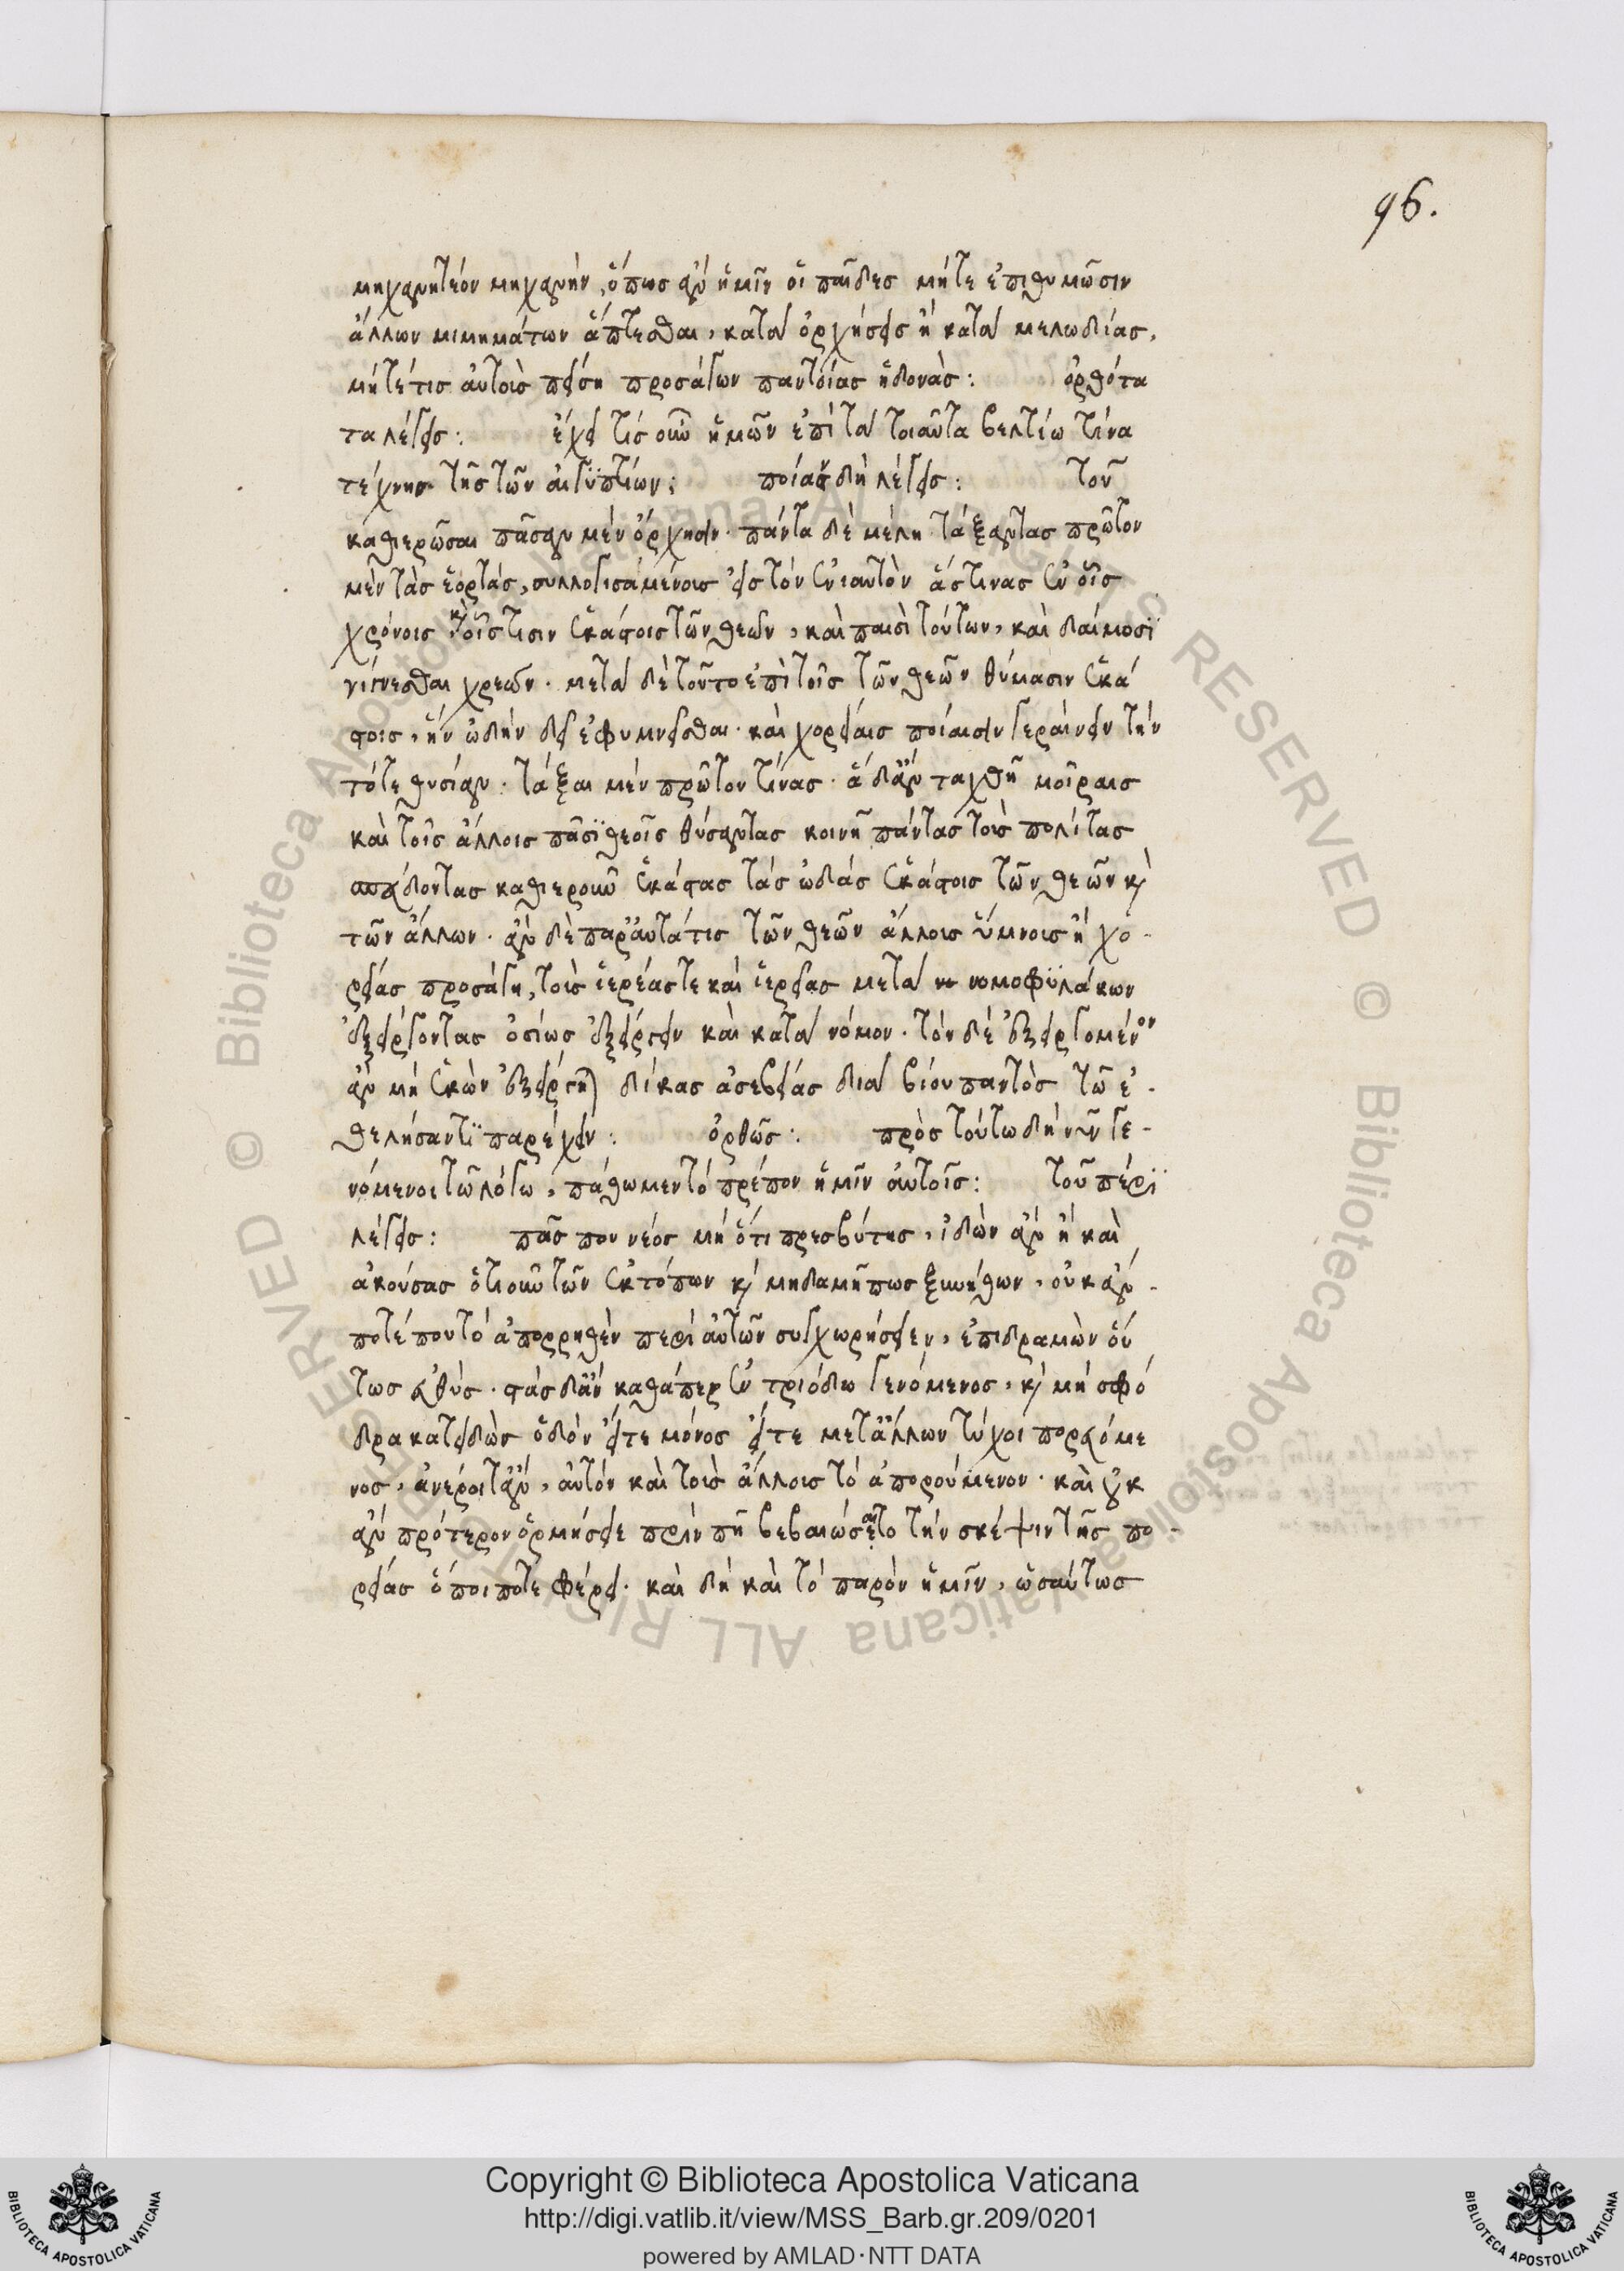 96.
μηχανητέον μηχανὴν, ὅπως ἂν ἡμῖν οἱ παῖδες μήτε ἐπιθυμῶσιν
ἄλλων μιμημάτων ἅπτεσθαι, κατὰ ὀρχήσεις ἢ κατὰ μελωδίας,
μήτέτις αὐτοὺς πείση προσάγων παντοίας ἡδονὰς: ὀρθότα
τα λέγεις: ἔχει τὶς οὖν ἡμῶν ἐπὶ τὰ τοιαῦτα βελτίω τίνα
τέχνην τῆς τῶν αἰγϋπτίων; ποίας δὴ λέγεις: τοῦ
καθιερῶσαι πᾶσαν μὲν ὄρχησιν. πάντα δὲ μέλη τάξαντας πρῶτον
μὲν τὰς ἑορτάς, συλλογισάμένους εἰς τὸν ἐνιαυτὸν ἅστινας ἐν οἷς
χρόνοις καὶ οἷστισιν ἑκάστοις τῶν θεῶν, καὶ παισὶ τούτων, καὶ δαίμοσϊ
γίγνεσθαι χρεών. μετὰ δὲ τοῦτο ἐπὶ τοῖς τῶν θεῶν θύμασιν ἑκά
στοις, ἣν ὠδὴν δεῖ ἐφυμνεῖσθαι. καὶ χορείαις ποίαισιν γεραίνειν τὴν
τότε θυσίαν. τάξαι μὲν πρῶτον τινας. ἃ δ' ἂν ταχθῆ μοίραις
καὶ τοῖς ἄλλοις πᾶσϊ θεοῖς θύσαντας κοινῆ πάντας τοὺς πολίτας
σπένδοντας καθιεροῦν ἑκάστας τὰς ὠδὰς ἑκάστοις τῶν θεῶν καὶ
τῶν ἄλλων. ἂν δὲ παρ' αὐτά τις τῶν θεῶν ἄλλους ὕμνους ἢ χο-
ρείας προσάγη, τοὺς ἱερέας τε καὶ ἱερείας μετὰ νομοφϋλάκων
ἐξείργοντας ὁσίως ἐξείργειν καὶ κατὰ νόμον. τὸν δὲ ἐξειργομένον
ἂν μὴ ἑκὼν ἐξείργηται δίκας ἀσεβείας διὰ βίου παντὸς τῶ ἐ-
θελήσαντϊ παρέχειν: ὀρθῶς: πρὸς τούτω δὴ νῦν γε-
νόμενοι τῶ λόγω, πάθωμεν τὸ πρέπον ἡμῖν αὐτοῖς: τοῦ πέρϊ
λέγεις: πᾶς που νέος μὴ ὅτι πρεσβύτης, ἰδὼν ἂν ἢ καὶ
ἀκούσας ὁτιοῦν τῶν ἐκτόπων καὶ μηδαμῆ πως ξυνήθων, οὐκ ἄν-
ποτέ που τὸ ἀπορρηθὲν περὶ αὐτῶν συγχωρήσειεν, ἐπιδραμὼν οὕ
τως εὐθύς. στὰς δ' ἂν καθάπερ ἐν τριόδω γενόμενος, καὶ μὴ σφό
δρα κατειδὼς ὁδὸν εἴτε μόνος εἴτε μετ' ἄλλων τύχοι πορευόμε
νος, ἀνέροιτ' ἂν, αὐτὸν καὶ τοὺς ἄλλους τὸ ἀπορούμενον. καὶ οὐκ
ἂν πρότερον ὁρμήσειε πρὶν πῆ βεβαιώσαιτο τὴν σκέψιν τῆς πο-
ρείας ὅποι ποτε φέρει. καὶ δὴ καὶ τὸ παρὸν ἡμῖν, ὡσαύτως
Copyright © Biblioteca Apostolica Vaticana
http://digi.vatlib.it/view/MSS_Barb.gr.209/0201
powered by AMLAD·NTT DATA
BIBLIOTECA APOSTOLICA VATICANA
BIBLIOTECA APOSTOLICA VATICANA
© Biblioteca Apostolica Vaticana ALL RIGHTS RESERVED © Biblioteca Apostolica Vaticana ALL RIGHTS RESERVED